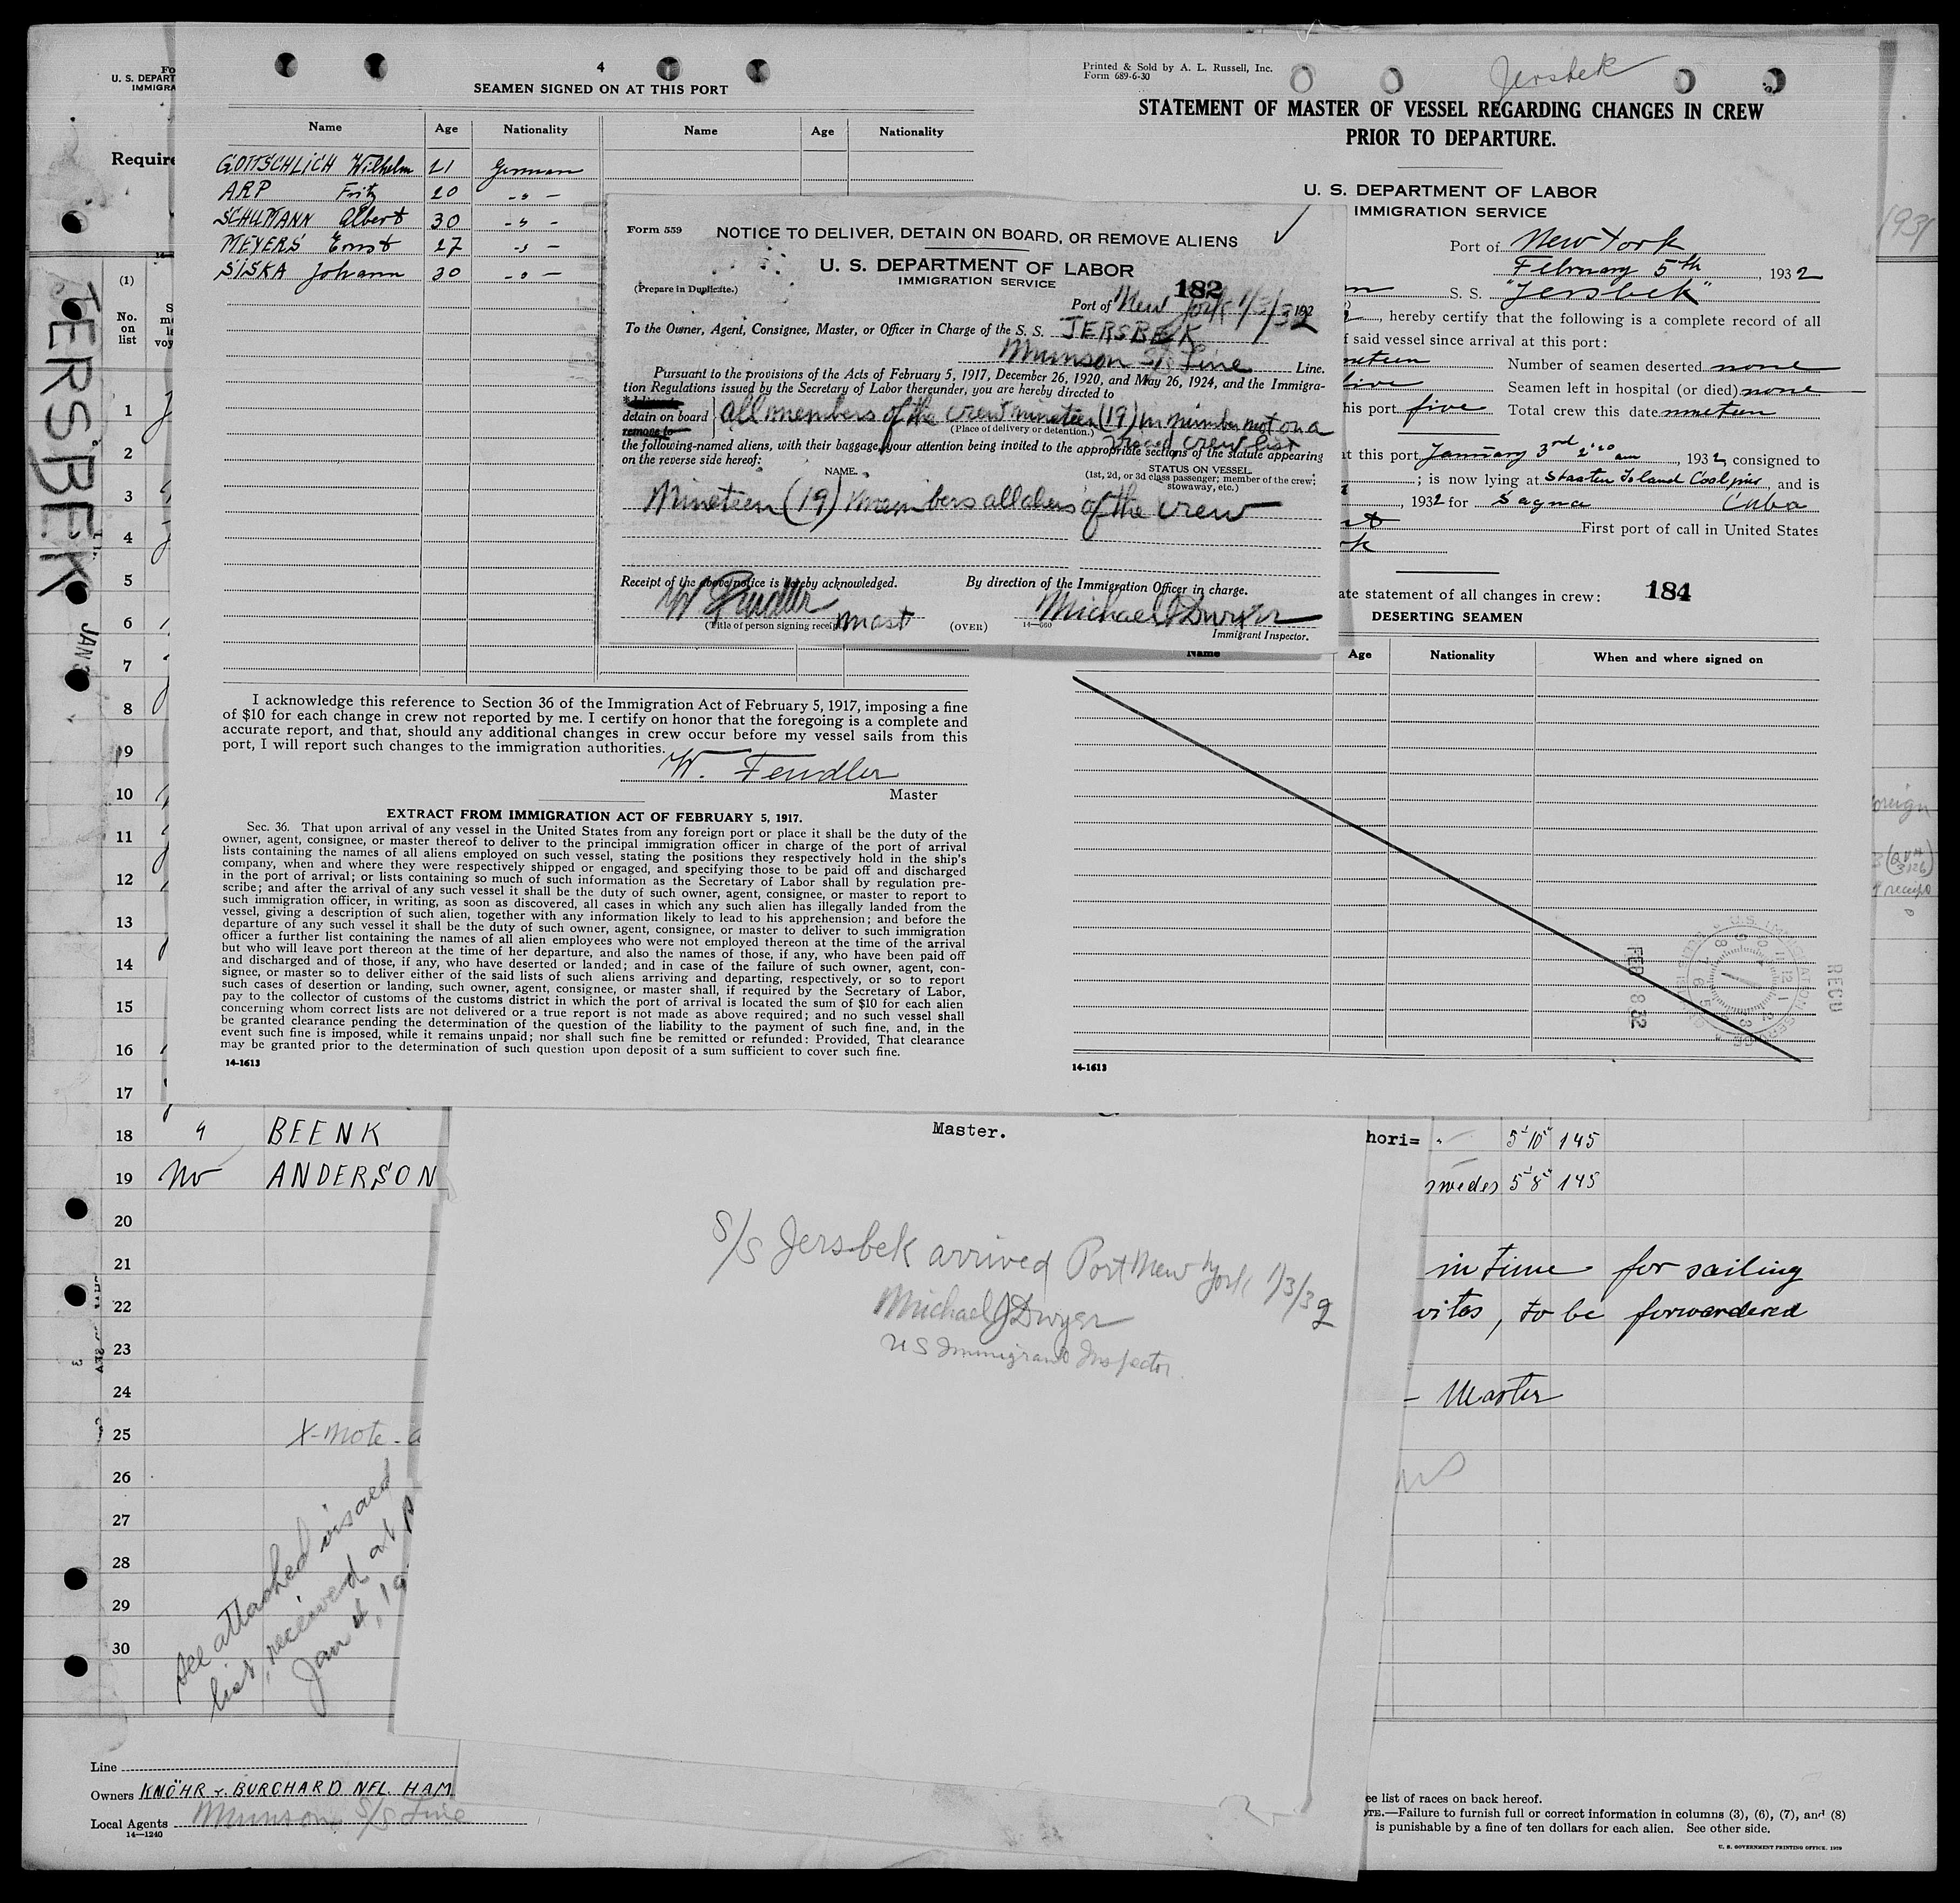 4
SEAMEN SIGNED ON AT THIS PORT
Name Age Nationality Name Age Nationality
GOTTSCHLICH Wilhelm 21 German
ARP Fritz 20 -"-
SCHUMANN Albert 30 -"-
MEYERS Ernst 27 -"-
SISKA Johann 30 -"-
I acknowledge this reference to Section 36 of the Immigration Act of February 5, 1917, imposing a fine
of $10 for each change in crew not reported by me. I certify on honor that the foregoing is a complete and
accurate report, and that, should any additional changes in crew occur before my vessel sails from this
port, I will report such changes to the immigration authorities.
W. Fendler
Master
EXTRACT FROM IMMIGRATION ACT OF FEBRUARY 5, 1917.
Sec. 36. That upon arrival of any vessel in the United States from any foreign port or place it shall be the duty of the
owner, agent, consignee, or master thereof to deliver to the principal immigration officer in charge of the port of arrival
lists containing the names of all aliens employed on such vessel, stating the positions they respectively hold in the ship's
company, when and where they were respectively shipped or engaged, and specifying those to be paid off and discharged
in the port of arrival; or lists containing so much of such information as the Secretary of Labor shall by regulation pre-
scribe; and after the arrival of any such vessel it shall be the duty of such owner, agent, consignee, or master to report to
such immigration officer, in writing, as soon as discovered, all cases in which any such alien has illegally landed from the
vessel, giving a description of such alien, together with any information likely to lead to his apprehension; and before the
departure of any such vessel it shall be the duty of such owner, agent, consignee, or master to deliver to such immigration
officer a further list containing the names of all alien employees who were not employed thereon at the time of the arrival
but who will leave port thereon at the time of her departure, and also the names of those, if any, who have been paid off
and discharged and of those, if any, who have deserted or landed; and in case of the failure of such owner, agent, con-
signee, or master so to deliver either of the said lists of such aliens arriving and departing, respectively, or so to report
such cases of desertion or landing, such owner, agent, consignee, or master shall, if required by the Secretary of Labor,
pay to the collector of customs of the customs district in which the port of arrival is located the sum of $10 for each alien
concerning whom correct lists are not delivered or a true report is not made as above required; and no such vessel shall
be granted clearance pending the determination of the question of the liability to the payment of such fine, and, in the
event such fine is imposed, while it remains unpaid; nor shall such fine be remitted or refunded: Provided, That clearance
may be granted prior to the determination of such question upon deposit of a sum sufficient to cover such fine.
14-1613
Form 559
NOTICE TO DELIVER, DETAIN ON BOARD, OR REMOVE ALIENS
U. S. DEPARTMENT OF LABOR
IMMIGRATION SERVICE
182
(Prepare in Duplicate.)
Port of New York 1/3/32 192
To the Owner, Agent, Consignee, Master, or Officer in Charge of the S. S. JERSBEK
Munson S/S Line Line.
Pursuant to the provisions of the Acts of February 5, 1917, December 26, 1920, and May 26, 1924, and the Immigra-
tion Regulations issued by the Secretary of Labor thereunder, you are hereby directed to
detain on board all members of the crew nineteen (19) in number not on a
remove to (Place of delivery or detention.) visaed crew list
the following-named aliens, with their baggage, your attention being invited to the appropriate sections of the statute appearing
on the reverse side hereof:
NAME. STATUS ON VESSEL.
(1st, 2d, or 3d class passenger; member of the crew;
stowaway, etc.)
Nineteen (19) members all aliens of the crew
Receipt of the above notice is hereby acknowledged. By direction of the Immigration Officer in charge.
W Fendler mast Michael J Dwyer
(Title of person signing receipt (OVER) 14-560 Immigrant Inspector.
Printed & Sold by A. L. Russell, Inc.
Form 689-6-30
Jersbek
STATEMENT OF MASTER OF VESSEL REGARDING CHANGES IN CREW
PRIOR TO DEPARTURE.
U. S. DEPARTMENT OF LABOR
IMMIGRATION SERVICE
Port of New York
February 5th, 1932
S. S. "Jersbek"
, hereby certify that the following is a complete record of all
f said vessel since arrival at this port:
neteen Number of seamen deserted none
five Seamen left in hospital (or died) none
his port five Total crew this date nineteen
t this port January 3rd 2:20 am, 1932, consigned to
; is now lying at Staaten Island Coalpier, and is
, 1932 for Sagua Cuba
First port of call in United States
rk
ate statement of all changes in crew: 184
DESERTING SEAMEN
Name Age Nationality When and where signed on
U.S. IMMIGRATION SERVICE
FEB 8 32
RECD
14-1613
Fo
U. S. DEPART
IMMIGRA
Require
1931
JERSBEK
JAN 3
(1)
No.
on
list
S
m
l
voy
1
2
3
4
5
6
7
8
9
10
11
12
13
14
15
16
17
18 " BEENK
19 No ANDERSON
20
21
22
23
24
25
26
27
28
29
30
oreign
receipt
hori= 5' 10" 145
swedes 5' 8" 145
in time for sailing
vitos, to be forwardered
- Master
Master.
S/S Jersbek arrived Port New York 1/3/32
Michael J Dwyer
US Immigrant Inspector
X-Note - a
See attached visaed
list, received at p
Jan 4, 19
Line
Owners KNÖHR & BURCHARD NFL. HAM
Local Agents Munson S/S Line
14-1240
ee list of races on back hereof.
OTE.—Failure to furnish full or correct information in columns (3), (6), (7), and (8)
is punishable by a fine of ten dollars for each alien. See other side.
U. S. GOVERNMENT PRINTING OFFICE. 1929